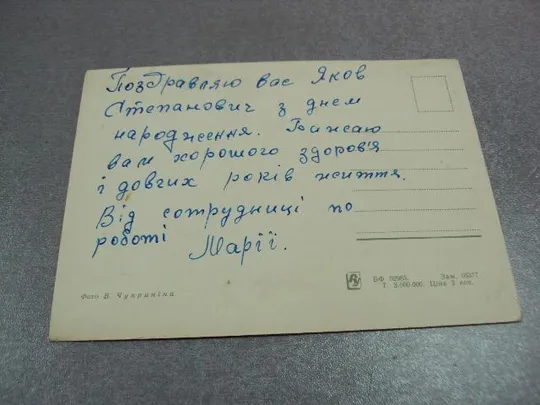 Поздравляю вас Яков
Степанович з днем
народження. Бажаю
вам хорошого здоров'я
і довгих років життя.
Від сотрудниці по
роботі Марії.
Фото В. Чуприніна
БФ 02983. Зам.
Т. 3.000.000. Ціна 3 коп.